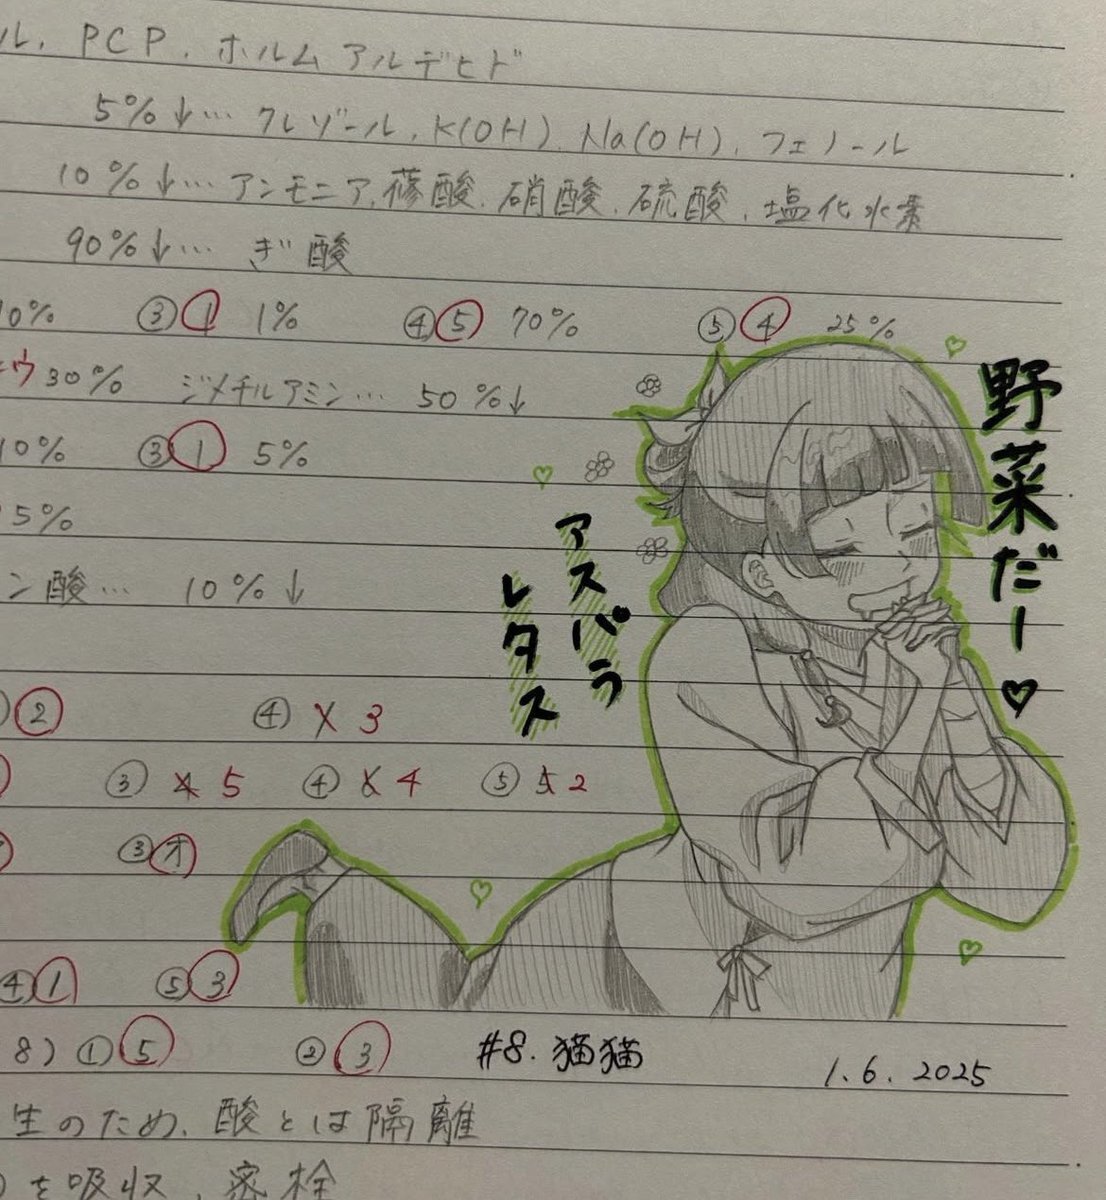 ル. PCP. ホルムアルデヒド
5%↓… クレゾール. K(OH). Na(OH). フェノール
10%↓… アンモニア. 蓚酸. 硝酸. 硫酸. 塩化水素
90%↓… ぎ酸
10% ③① 1% ④⑤ 70% ⑤④ 25%
ウ 30% ジメチルアミン… 50%↓
10% ③① 5%
5%
ン酸… 10%↓
② ④ 3
③ 5 ④ 4 ⑤ 2
③オ
④① ⑤③
8) ①⑤ ②③
生のため. 酸とは隔離
を吸収. 密栓
野菜だー♡
アスパラ
レタス
#8. 猫猫
1.6.2025